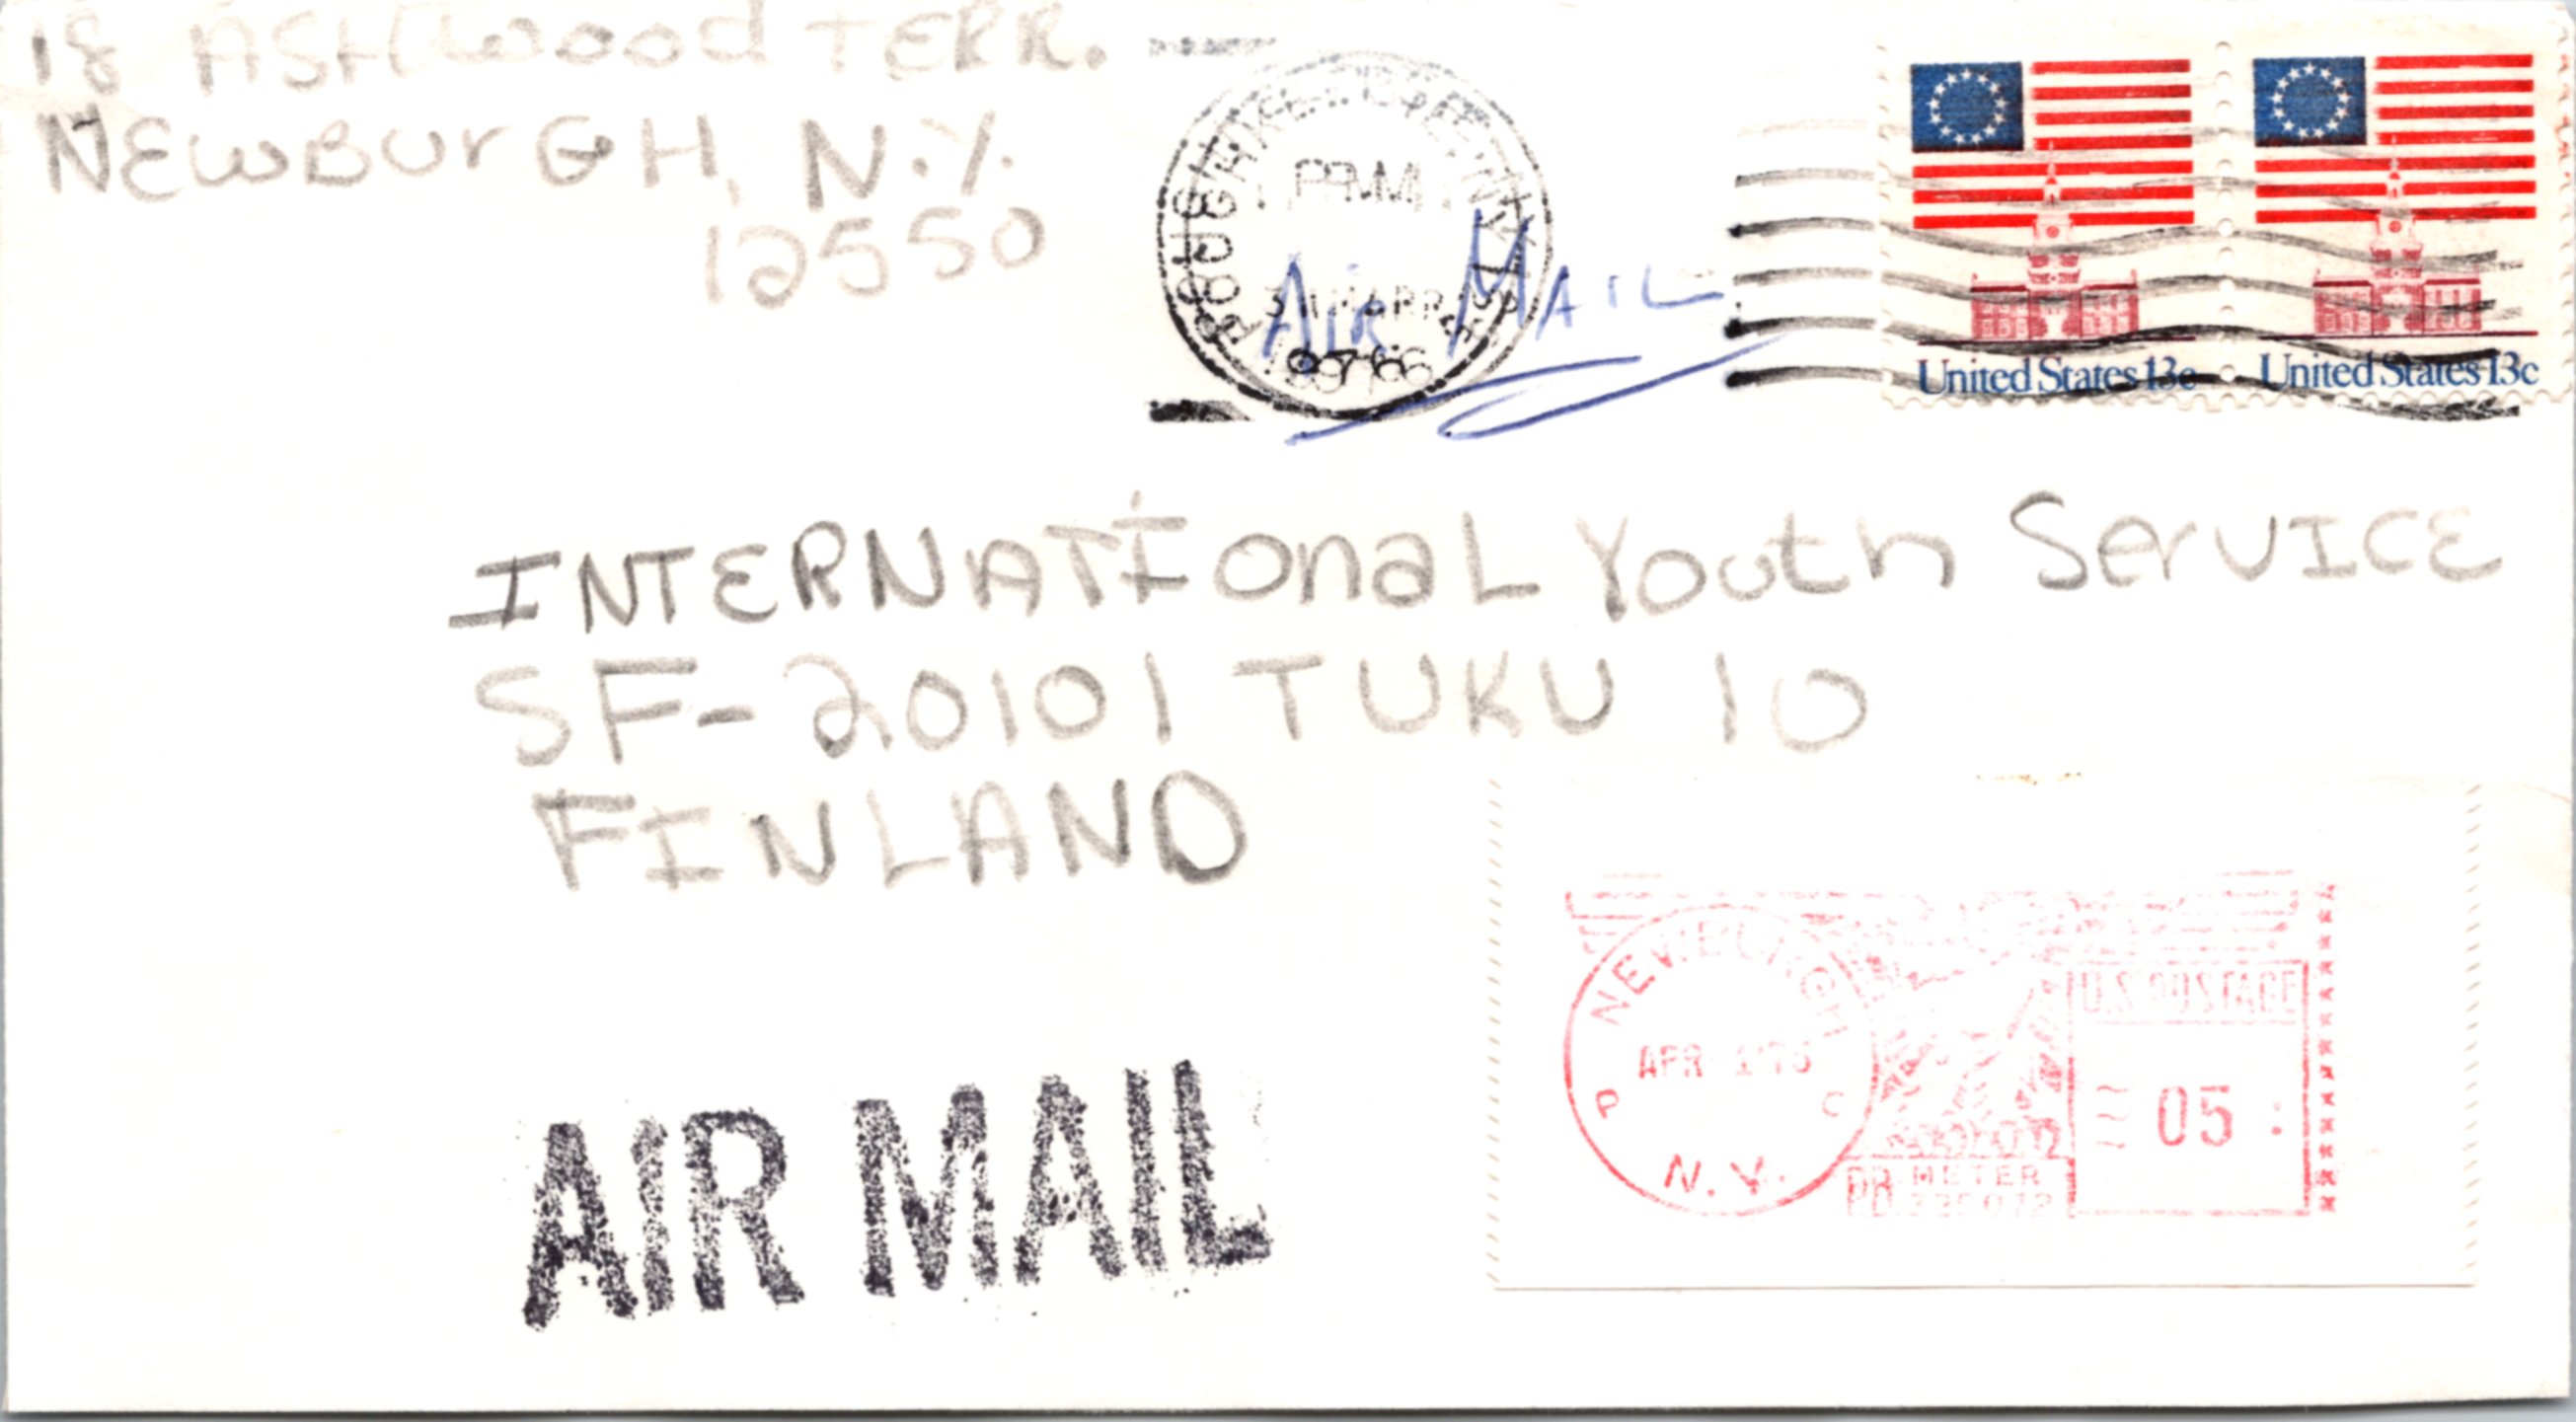 18 ASHwood TERR.
NEWBurGH, N.Y.
12550
POUGHKEEPSIE, NY
PM
1976
AIR MAIL
United States 13c
United States 13c
INTERNATIonaL Youth ServICE
SF-20101 TUKU 10
FINLAND
AIR MAIL
NEWBURGH
APR 1'76
P C
N.Y.
U.S. POSTAGE
05
PB METER